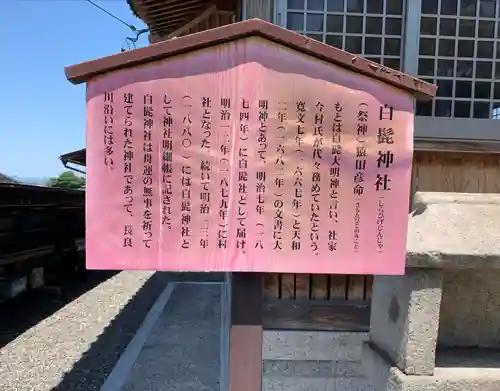 白髭神社（しらひげじんじゃ）
（祭神）猿田彦命（さるたひこのみこと）
もとは白髭大明神と言い、社家
今村氏が代々務めていたという。
寛文七年（一六六七年）と天和
二年（一六八二年）の文書に大
明神とあって、明治七年（一八
七四年）に白髭社として届け、
明治一二年（一八七九年）に村
社となった。続いて明治一三年
（一八八〇）には白髭神社と
して神社明細帳に記された。
白髭神社は舟運の無事を祈って
建てられた神社であって、長良
川沿いには多い。